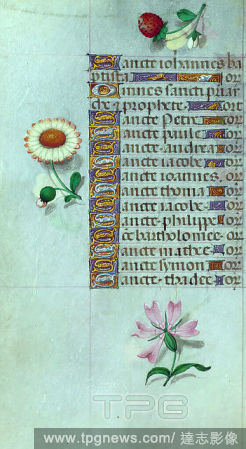 Sancte iohannes ba
ptista or
Omnes sancti patriar
che et prophete or
Sancte Petre or
Sancte paule or
Sancte andrea or
Sancte iacobe or
Sancte ioannes or
Sancte thoma or
Sancte iacobe or
Sancte philippe or
Sancte bartholomee or
Sancte mathee or
Sancte symon or
Sancte thadee or
TPG
www.tpgnews.com/ 達志影像